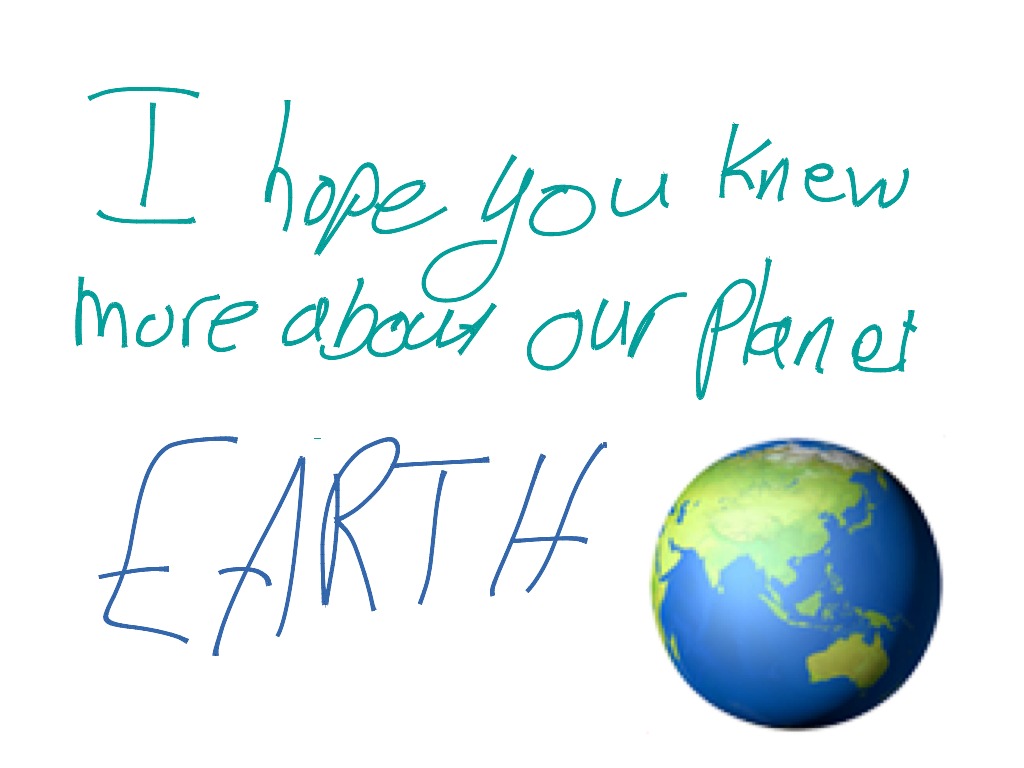 I hope you knew
more about our planet
EARTH